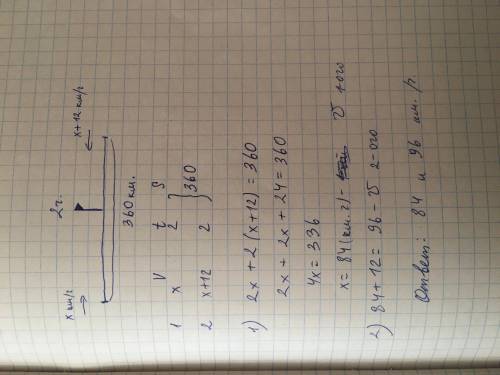 2ч.
x км/ч x+12 км/ч
360 км.
V t S
1 x 2
2 x+12 2 } 360
1) 2x + 2(x+12) = 360
2x + 2x + 24 = 360
4x = 336
x = 84 (км.ч) - V 1-ого
2) 84 + 12 = 96 - V 2-ого
Ответ: 84 и 96 км./ч